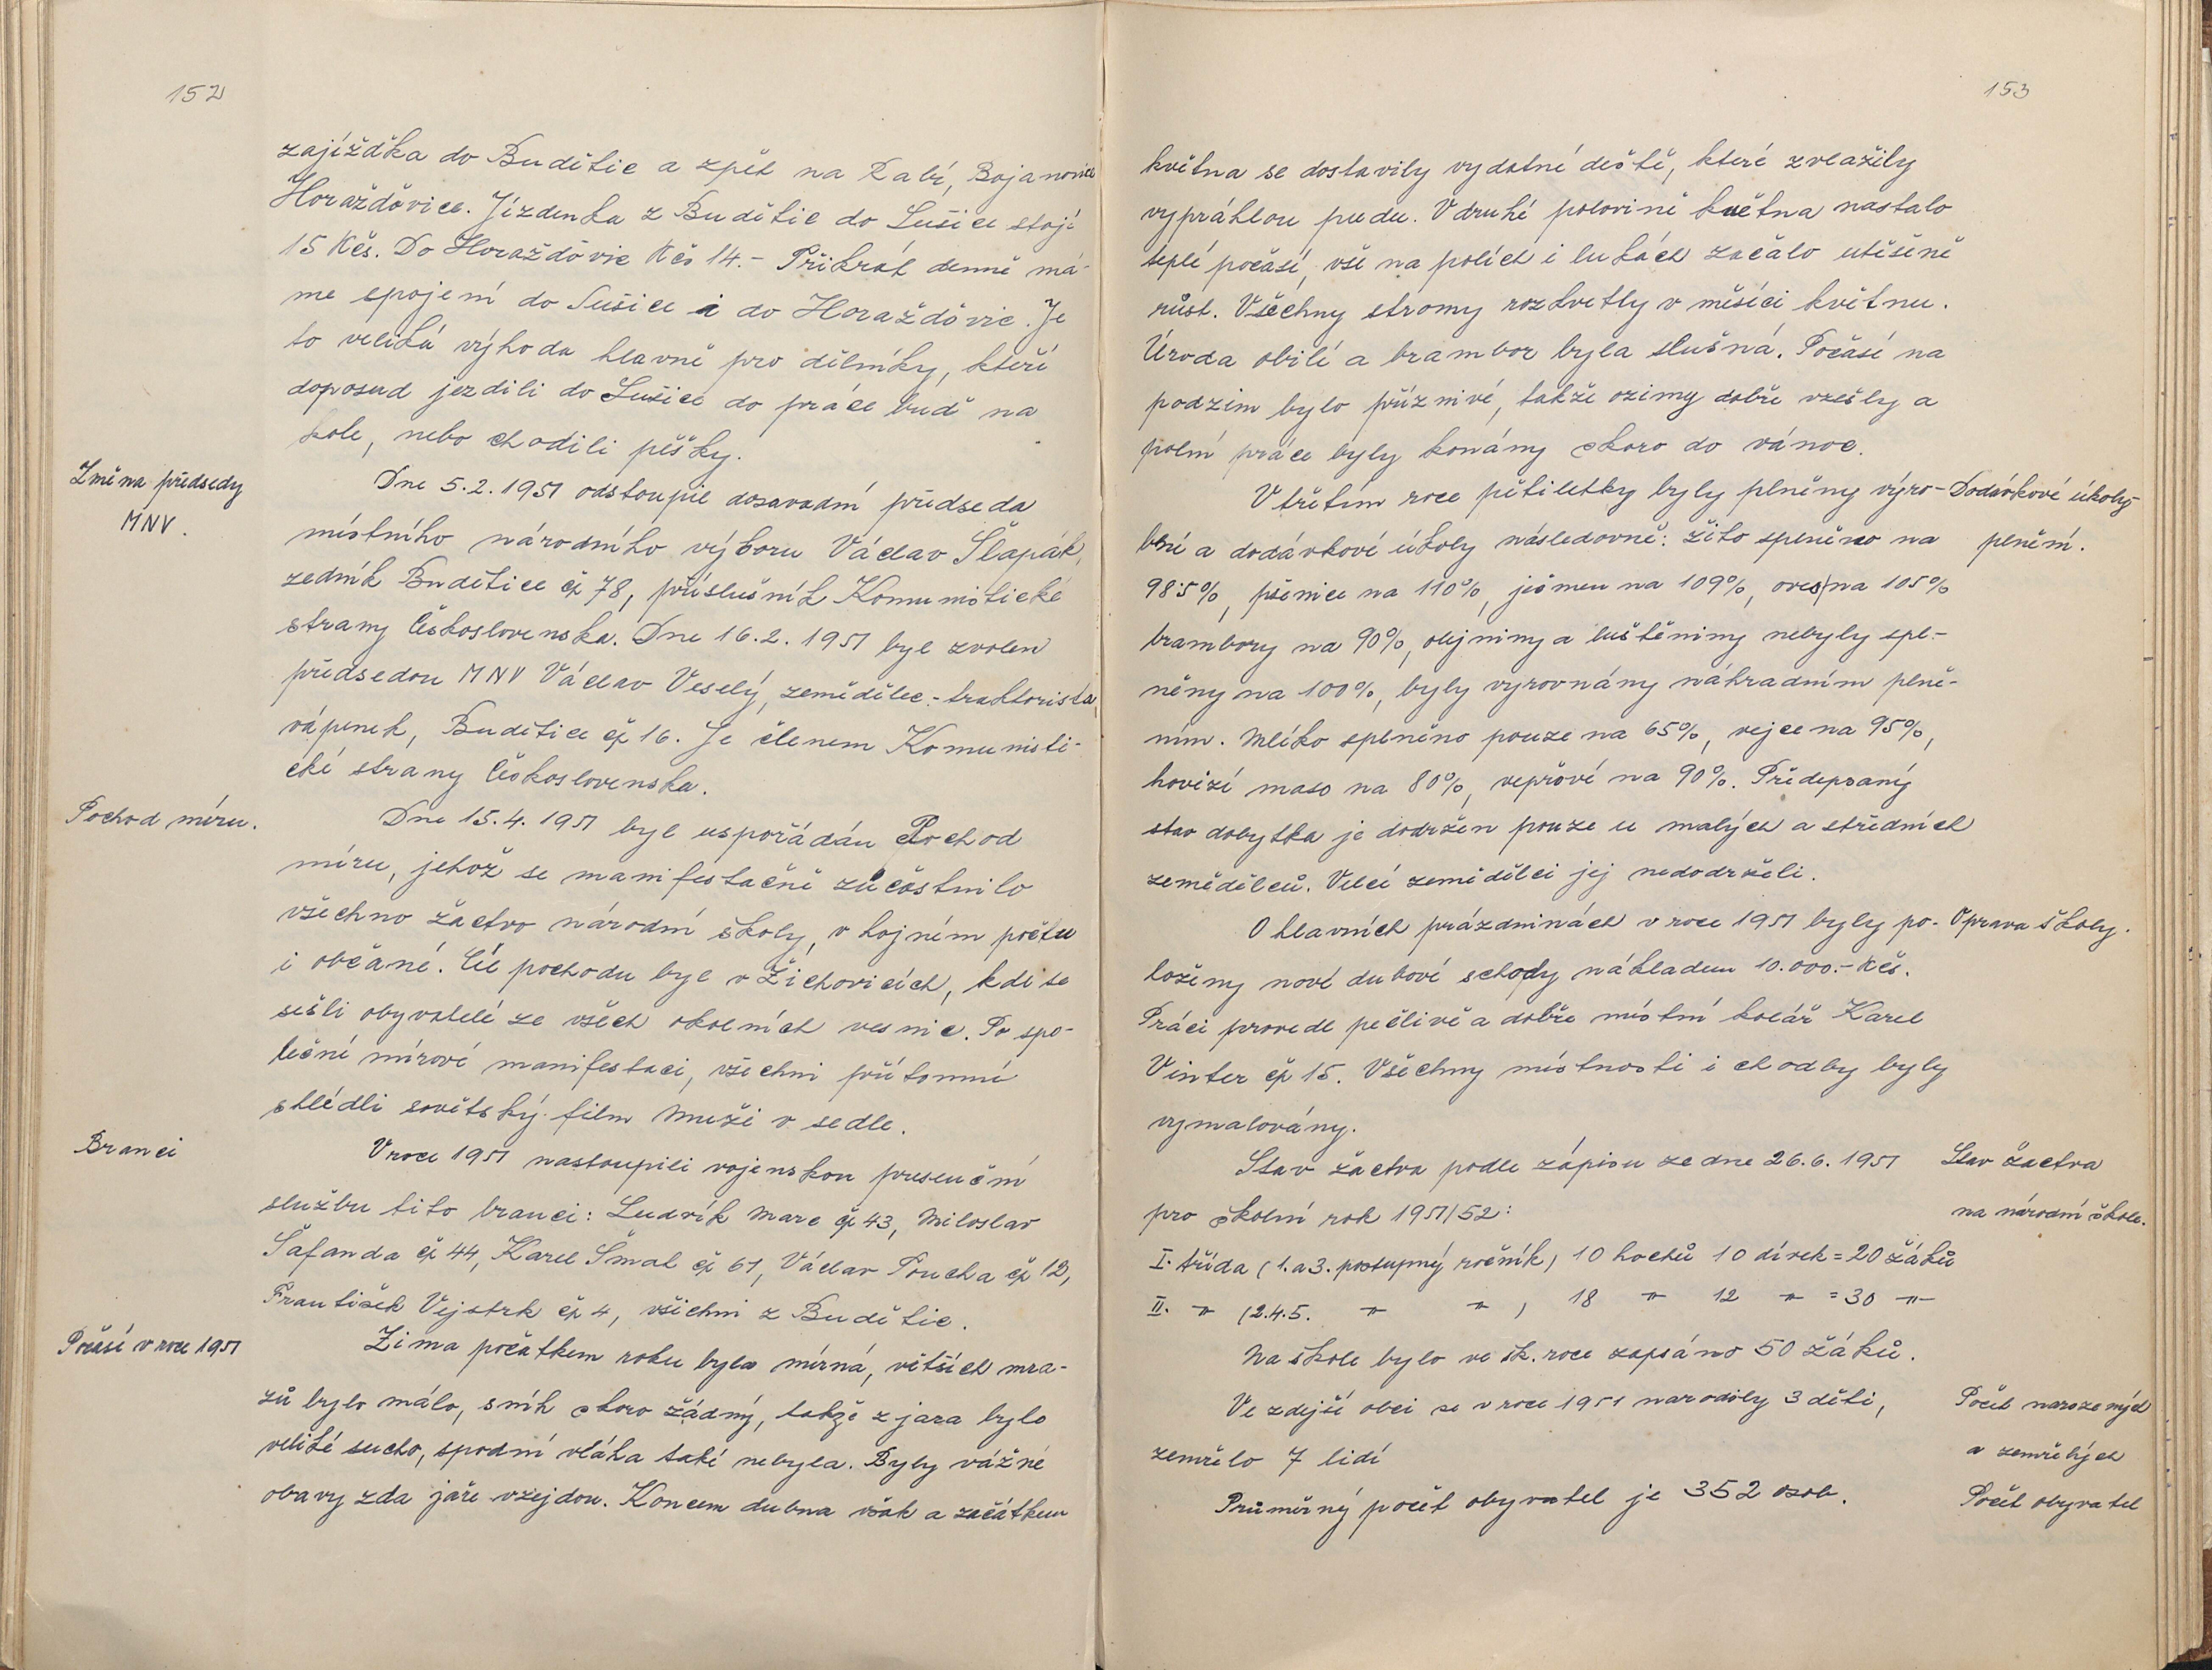 152
zajíždka do Budětic a zpět na Rabí, Bojanovice
Horažďovice. Jízdenka z Budětic do Sušice stojí
15 Kčs. Do Horažďovic Kčs 14.- Třikrát denně má-
me spojení do Sušice i do Horažďovic. Je
to veliká výhoda hlavně pro dělníky, kteří
doposud jezdili do Sušice do práce buď na
kole, nebo chodili pěšky.
Změna předsedy
MNV.
Dne 5.2.1951 odstoupil dosavadní předseda
místního národního výboru Václav Šlapák,
zedník Budětice čp 78, příslušník Komunistické
strany Československa. Dne 16.2.1951 byl zvolen
předsedou MNV Václav Veselý, zemědělec-traktorista,
vápenek, Budětice čp 16. Je členem Komunisti-
cké strany Československa.
Pochod míru.
Dne 15.4.1951 byl uspořádán Pochod
míru, jehož se manifestačně zúčastnilo
všechno žactvo národní školy, v hojném počtu
i občané. Cíl pochodu byl v Žichovicích, kde se
sešli obyvatelé ze všech okolních vesnic. Po spo-
lečné mírové manifestaci, všichni přítomní
shlédli sovětský film Muži v sedle.
Branci
V roce 1951 nastoupili vojenskou presenční
službu tito branci: Ludvík Marc čp 43, Miloslav
Šafanda čp 44, Karel Šmat čp 61, Václav Poucha čp 12,
František Vejstrk čp 4, všichni z Budětic.
Počasí v roce 1951
Zima počátkem roku byla mírná, větších mra-
zů bylo málo, sníh skoro žádný, takže z jara bylo
veliké sucho, spodní vláha také nebyla. Byly vážné
obavy zda jaře vzejdou. Koncem dubna však a začátkem
153
května se dostavily vydatné deště, které zvlažily
vyprahlou pudu. V druhé polovině května nastalo
teplé počasí, vše na polích i lukách začalo utěšeně
růst. Všechny stromy rozkvetly v měsíci květnu.
Úroda obilí a brambor byla slušná. Počasí na
podzim bylo příznivé, takže ozimy dobře vzešly a
polní práce byly konány skoro do vánoc.
V třetím roce pětiletky byly plněny výro-
Dodávkové úkoly-
plnění.
bní a dodávkové úkoly následovně: žito splněno na
98.5%, pšenice na 110%, ječmen na 109%, oves na 105%
brambory na 90%, olejniny a luštěniny nebyly spl-
něny na 100%, byly vyrovnány náhradním plně-
ním. Mléko splněno pouze na 65%, vejce na 95%,
hovězí maso na 80%, vepřové na 90%. Předepsaný
stav dobytka je dodržen pouze u malých a středních
zemědělců. Velcí zemědělci jej nedodrželi.
O hlavních prázdninách v roce 1951 byly po-
Oprava školy.
loženy nové dubové schody nákladem 10.000.- Kčs.
Práci provedl pečlivě a dobře místní kolář Karel
Vinter čp 15. Všechny místnosti i chodby byly
vymalovány.
Stav žactva podle zápisu ze dne 26.6.1951
Stav žactva
na národní škole.
pro školní rok 1951/52:
I. třída (1. a 3. postupný ročník) 10 hochů 10 dívek = 20 žáků
II. -"- (2.4.5. -"- -"- ) 18 -"- 12 -"- = 30 -"-
Na škole bylo ve šk. roce zapsáno 50 žáků.
Ve zdejší obci se v roce 1951 narodily 3 děti,
Počet narozených
a zemřelých
zemřelo 7 lidí
Průměrný počet obyvatel je 352 osob.
Počet obyvatel